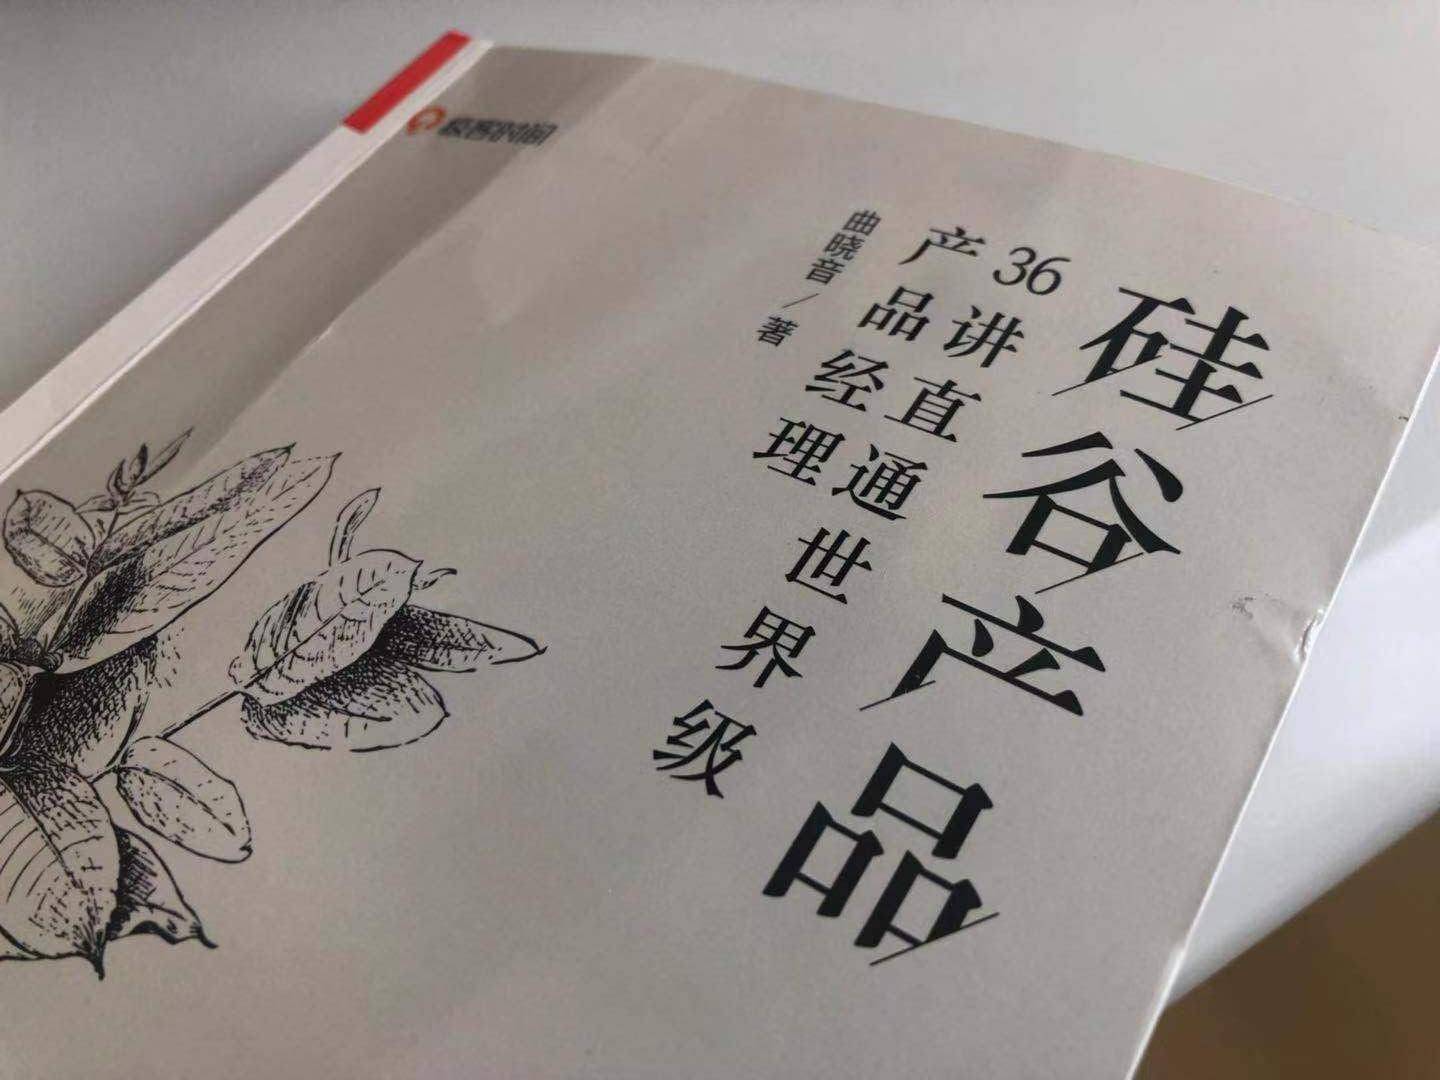 极客时间
硅谷产品
36讲直通世界级
产品经理
曲晓音/著